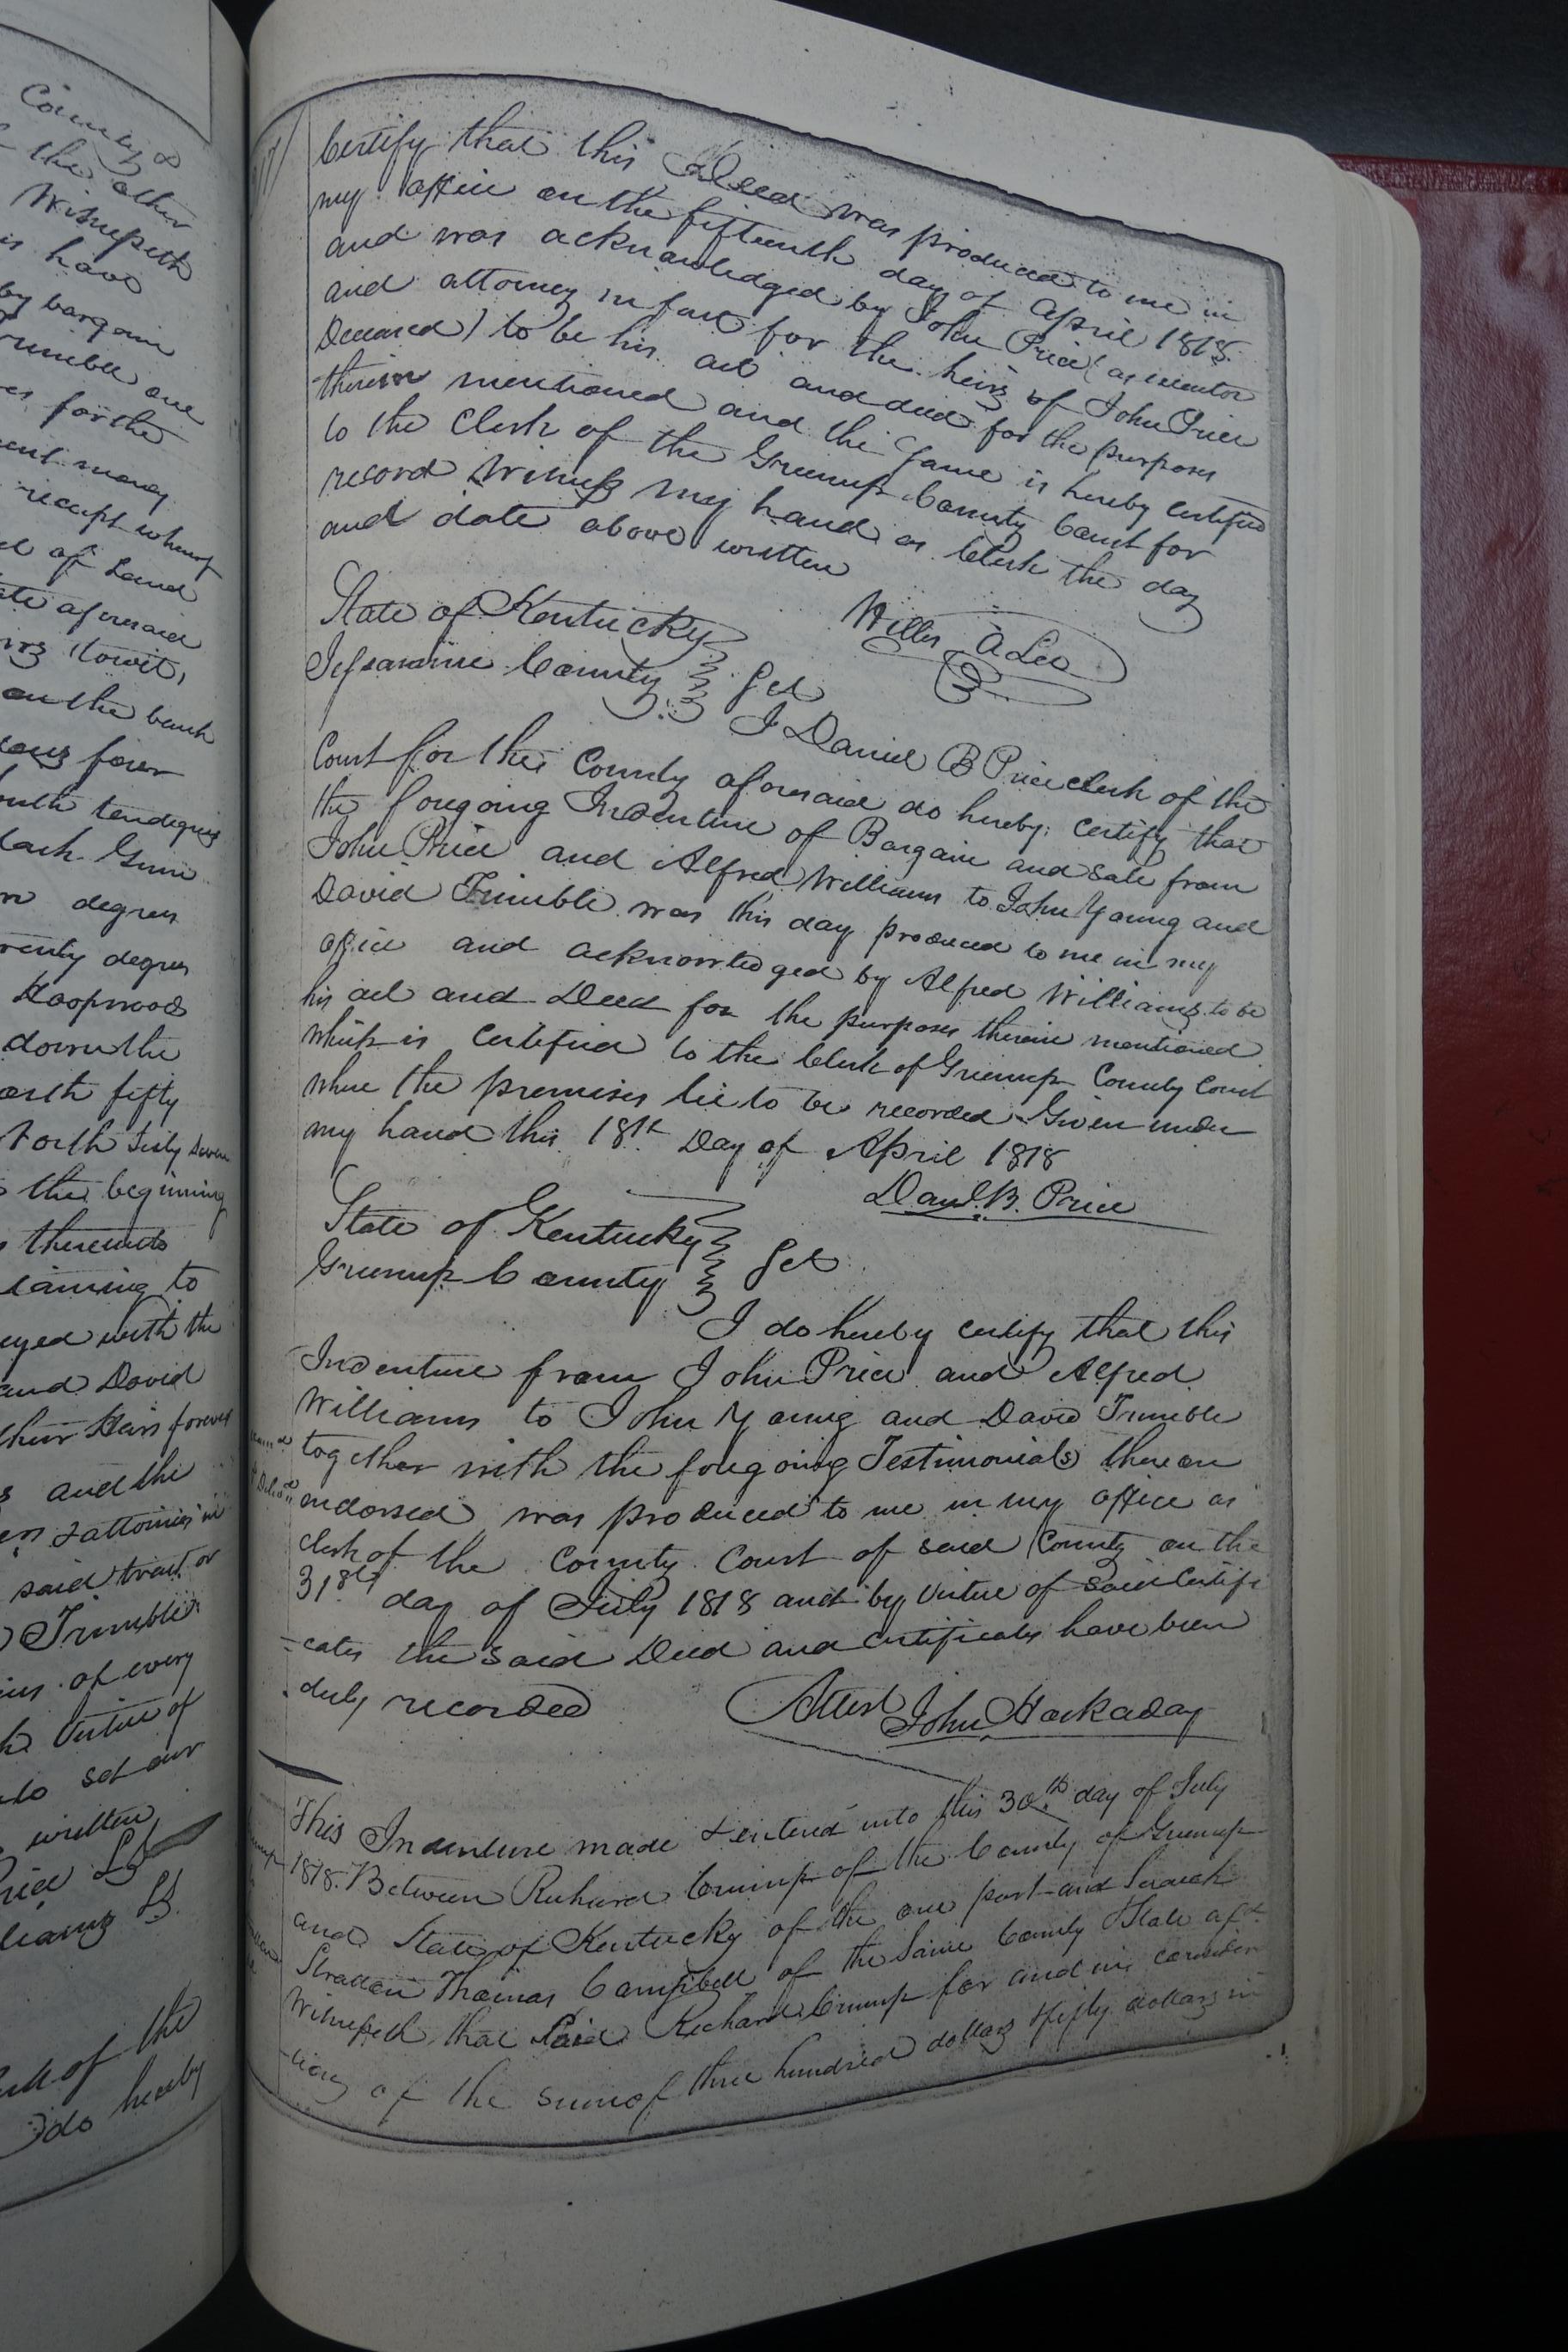 County &
the other
Witnesseth
have
by bargain
number one
forthe
money
receipt whereof
of Land
ate aforesaid
towit,
on the bank
forer
tendegrees
Gum
degrees
degrees
Hoopwood
down the
fifty
North Sixty Seven
the beginning
thereunto
to
with the
and David
their Heirs forever
and the
& attornies in
said tract or
Trimble
of every
Virtue of
set our
written
LS
LS
of the
do hereby
Certify that this Deed was produced to me in
my office on the fifteenth day of April 1818
and was acknowledged by John Price (as executor
and attorney in fact for the heirs of John Price
Deceased) to be his act and deed for the purposes
therein mentioned and the Same is hereby certified
to the Clerk of the Greenup County Court for
record Witness my hand as Clerk the day
and date above written
Willis A Lee
State of Kentucky
Jessamine County Sct
I Daniel B Price clerk of the
Court for the County aforesaid do hereby certify that
the foregoing Indenture of Bargain and Sale from
John Price and Alfred Williams to John Young and
David Trimble was this day produced to me in my
office and acknowledged by Alfred Williams to be
his act and Deed for the purposes therein mentioned
which is Certified to the Clerk of Greenup County Court
where the premises lie to be recorded Given under
my hand this 18th Day of April 1818
Danl. B. Price
State of Kentucky
Greenup County Sct
I do hereby certify that this
Indenture from John Price and Alfred
Williams to John Young and David Trimble
together with the foregoing Testimonials thereon
endorsed was produced to me in my office as
clerk of the County Court of said County on the
31st day of July 1818 and by Virtue of said Certifi
=cates the said Deed and Certificates have been
duly recorded
Attest John Hockaday
This Indenture made & entered into this 30th day of July
1818. Between Richard Crump of the County of Greenup
and State of Kentucky of the one part and
Thomas Campbell of the Same County & State afd
Witnesseth that Said Richard Crump for and in consider
-tion of the sum of three hundred dollars & fifty dollars in